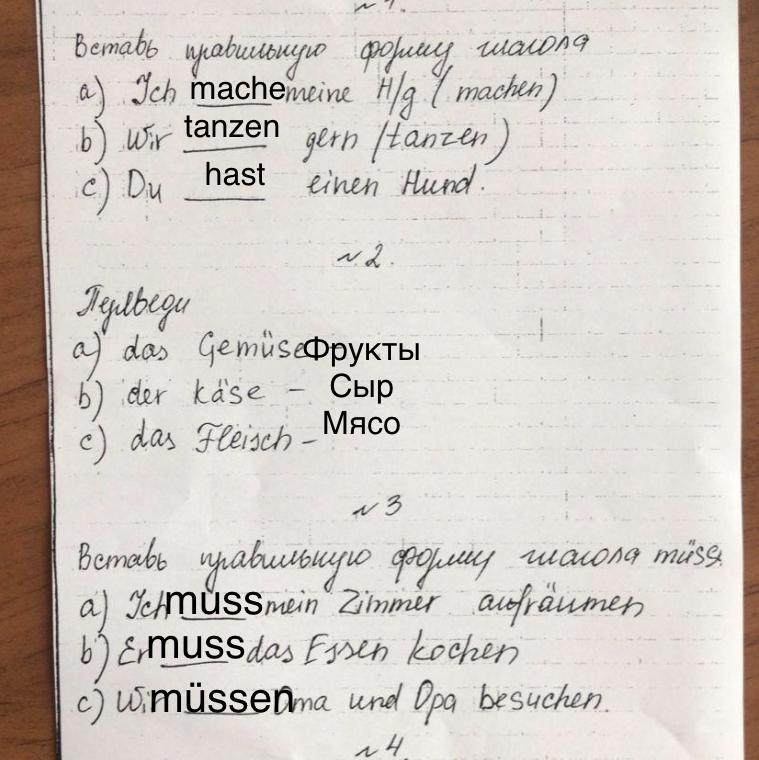 Вставь правильную форму глагола
a) Ich mache meine H/g (machen)
b) Wir tanzen gern (tanzen)
c) Du hast einen Hund.
№2.
Переведи
a) das Gemüse Фрукты
b) der Käse – Сыр
c) das Fleisch – Мясо
№3
Вставь правильную форму глагола müss
a) Ich muss mein Zimmer aufräumen
b) Er muss das Essen kochen
c) Wir müssen Oma und Opa besuchen.
№4